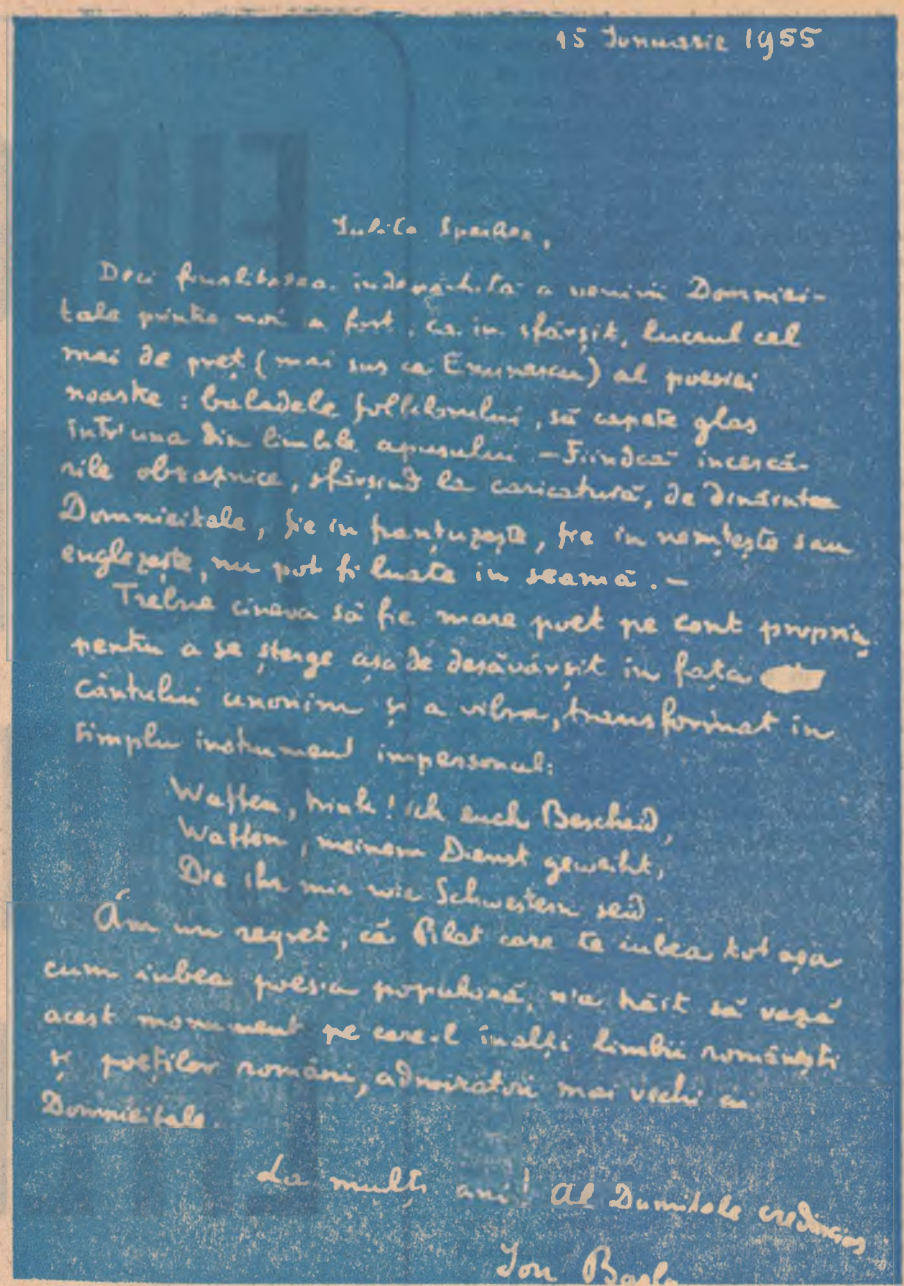 15 Ianuarie 1955
Iubite Sperber,
Deci finalitatea îndepărtată a venirii Domniei-
tale printre noi a fost, ca în sfârșit, lucrul cel
mai de preț (mai sus ca Eminescu) al poesiei
noastre: baladele folklorului, să capete glas
într'una din limbile apusului – Fiindcă încercă-
rile obraznice, sfârșind la caricatură, de dinaintea
Domnieitale, fie în franțuzește, fie în nemțește sau
englezește, nu pot fi luate în seamă. –
Trebue cineva să fie mare poet pe cont propriu
pentru a se șterge așa de desăvârșit în fața
cântului anonim și a vibra, transformat în
simplu instrument impersonal:
Waffen, trink! ich euch Bescheid,
Waffen, meinem Dienst geweiht,
Die ihr mir wie Schwestern seid.
Am un regret, că Pilat care te iubea tot așa
cum iubea poesia populară, n'a trăit să vază
acest monument pe care-l înalți limbii românești
și poeților români, admiratori mai vechi ai
Domnieitale.
La mulți ani! Al Dumitale credincios
Ion Barbu